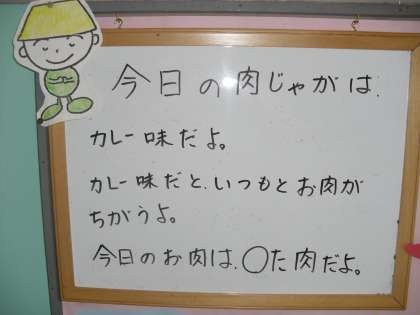 今日の肉じゃがは、
カレー味だよ。
カレー味だと、いつもとお肉が
ちがうよ。
今日のお肉は、◯た肉だよ。